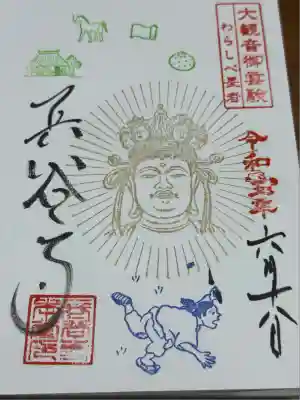 大観音御霊験
わらしべ長者
令和年
六月十八日
長谷寺